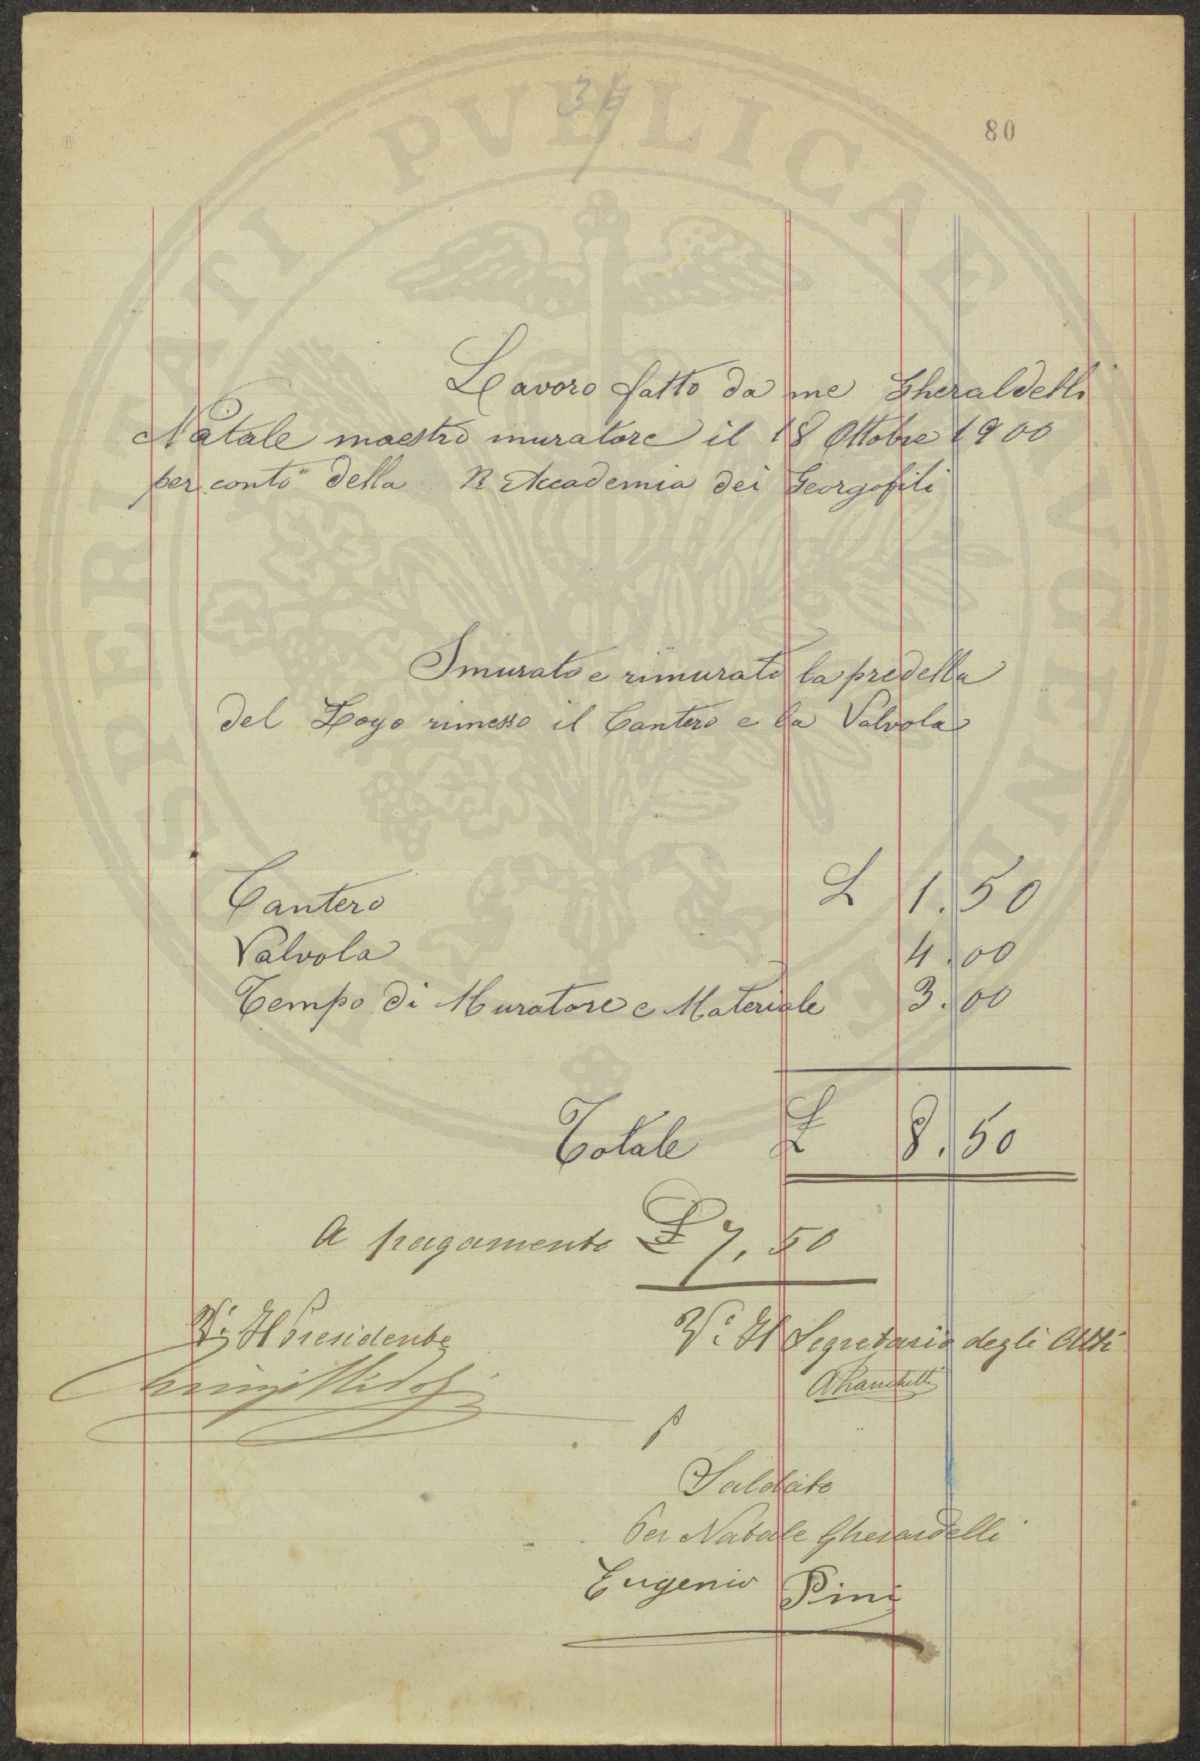 34
80
Lavoro fatto da me Gheraldelli
Natale maestro muratore il 18 Ottobre 1900
per conto della R Accademia dei Georgofili
Smurato e rimurato la predella
del Logo rimesso il Cantero e la Valvola
Cantero L 1.50
Valvola 4.00
Tempo di Muratore e Materiale 3.00
Totale £ 8.50
A pagamento £ 7,50
V.° Il Presidente
V.° Il Segretario degli Atti
Saldato
Per Natale Gherardelli
Eugenio Pini
PUBLICAE